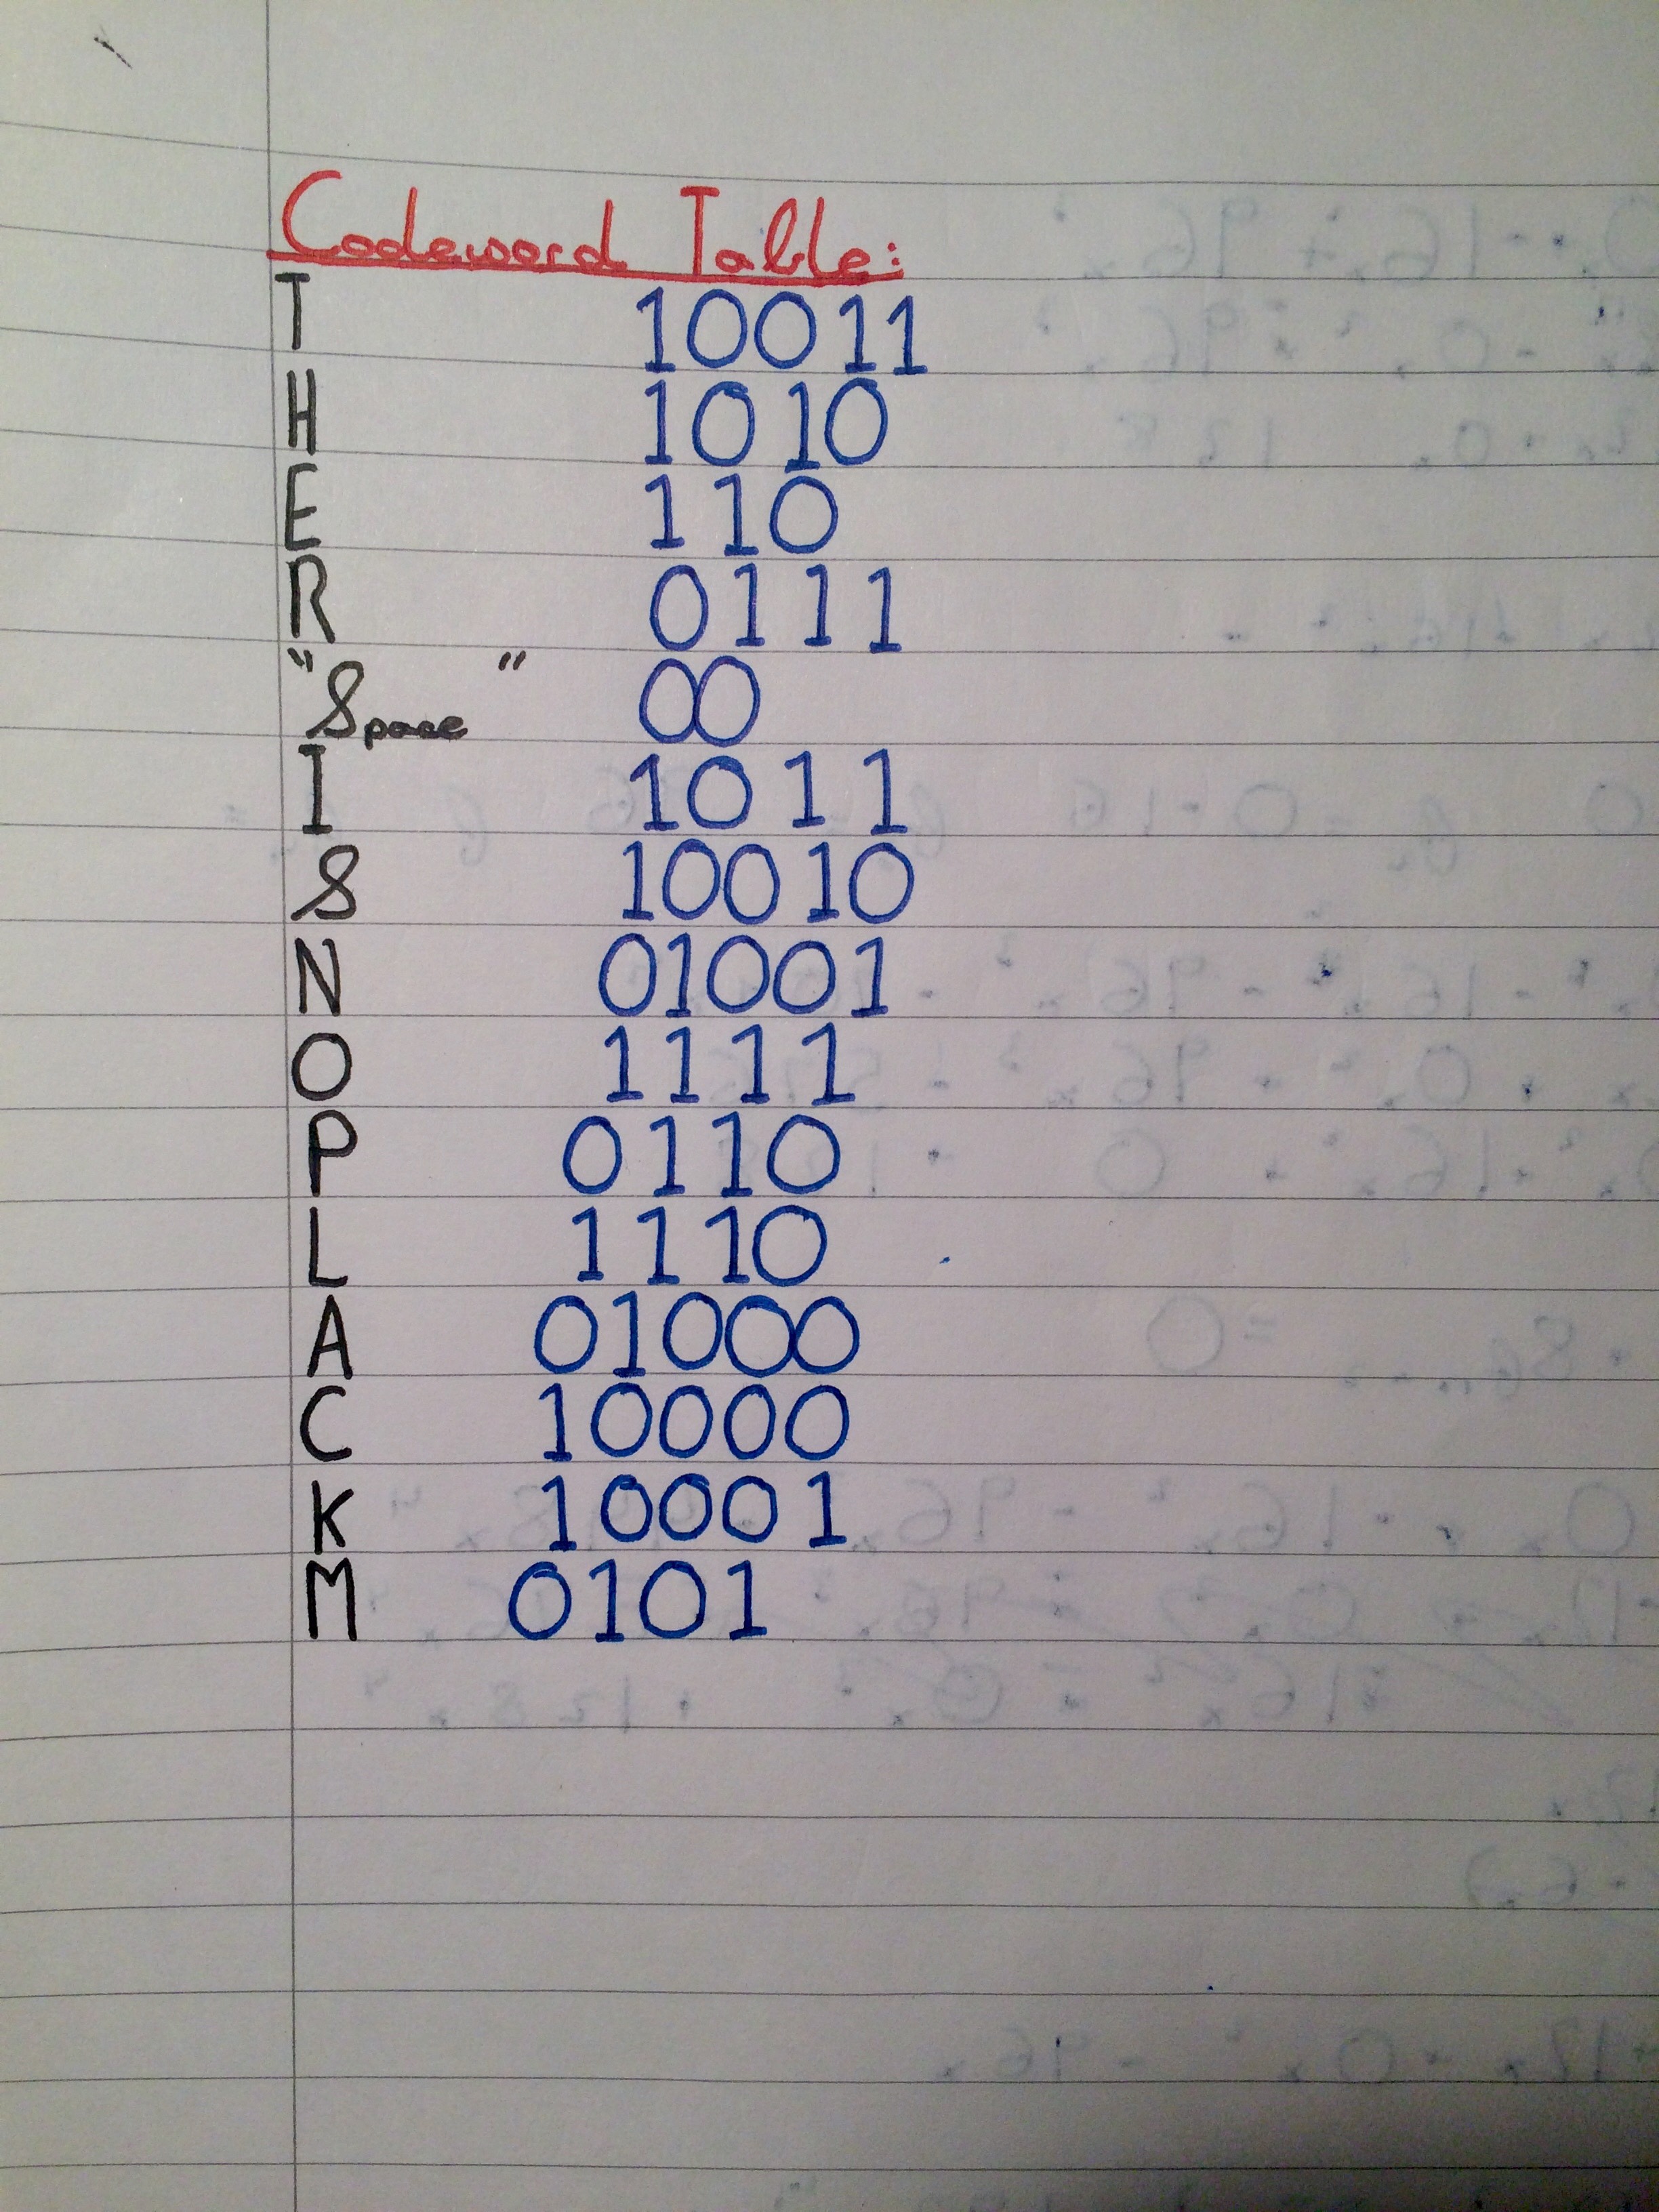 Codeword Table:
T 10011
H 1010
E 110
R 0111
"Space" 00
I 1011
S 10010
N 01001
O 1111
P 0110
L 1110
A 01000
C 10000
K 10001
M 0101